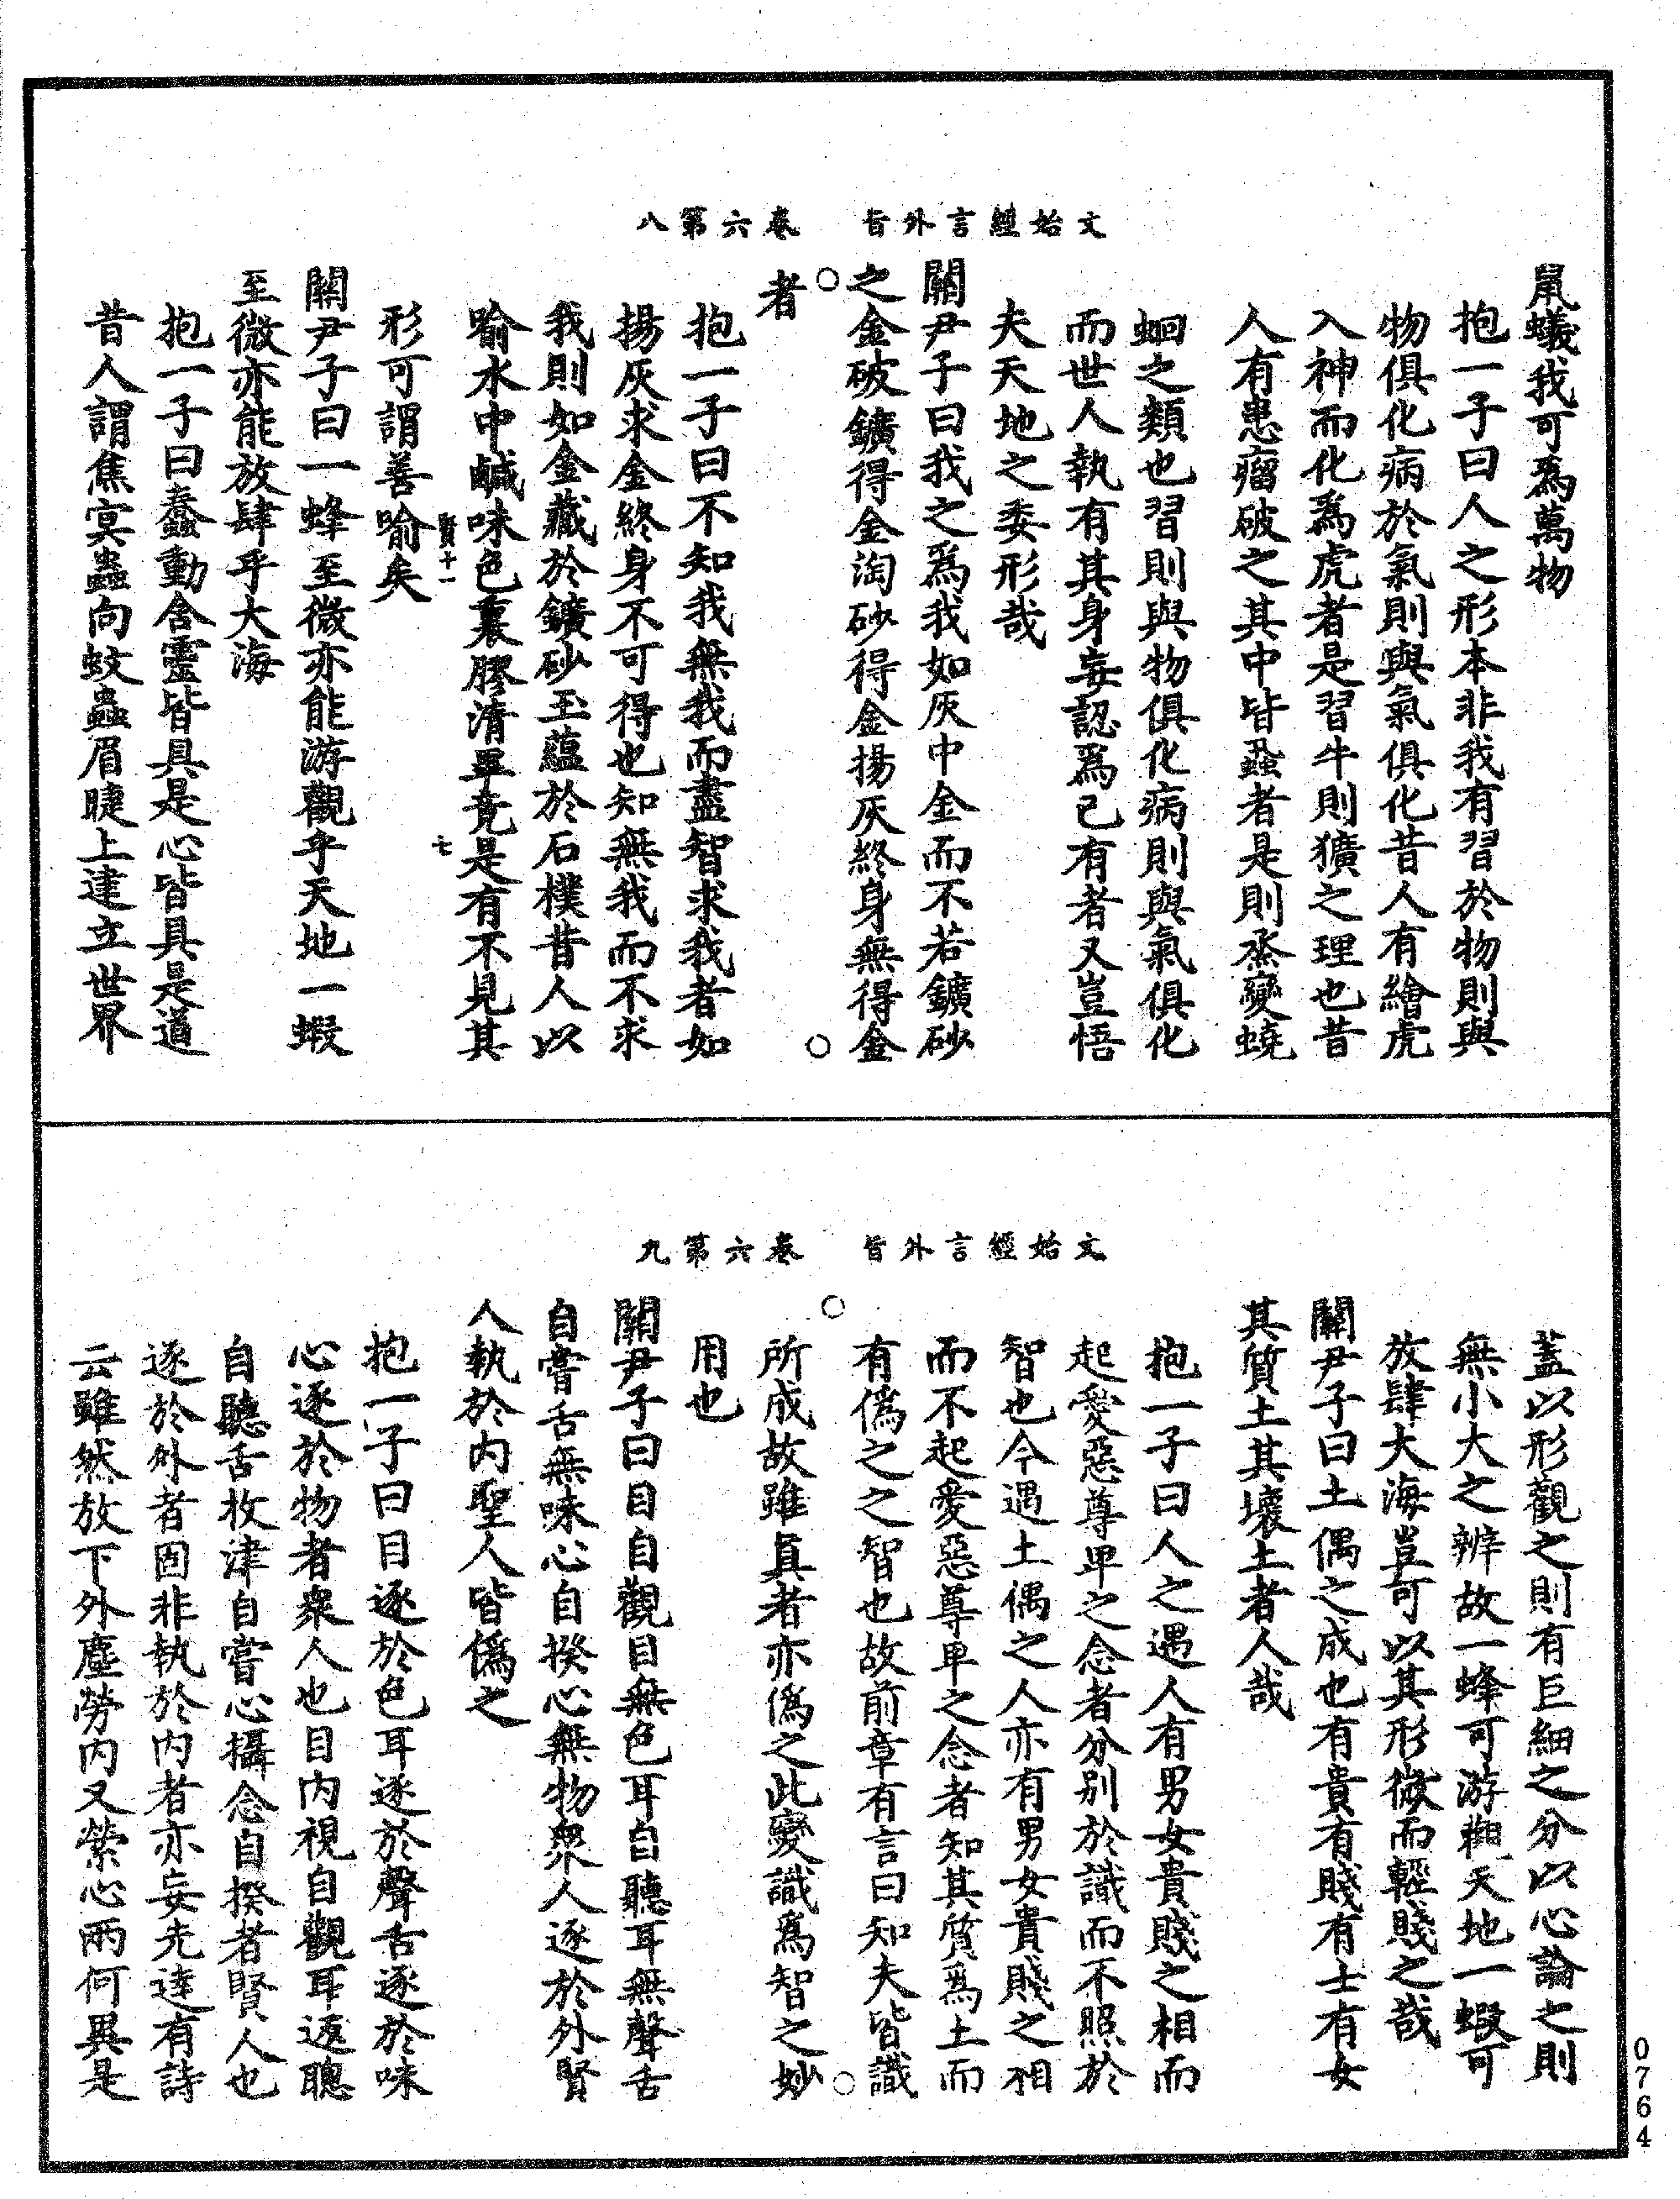 文始經言外旨　卷六第八
鼠蟻我可爲萬物
抱一子曰人之形本非我有習於物則與
物俱化病於氣則與氣俱化昔人有繪虎
入神而化爲虎者是習牛則獷之理也昔
人有患瘤破之其中皆蝨者是則烝變蟯
蛔之類也習則與物俱化病則與氣俱化
而世人執有其身妄認爲己有者又豈悟
夫天地之委形哉
關尹子曰我之爲我如灰中金而不若鑛砂
之金破鑛得金淘砂得金揚灰終身無得金
者
抱一子曰不知我無我而盡智求我者如
揚灰求金終身不可得也知無我而不求
我則如金藏於鑛砂玉蘊於石樸昔人以
喻水中鹹味色裏膠清畢竟是有不見其
賢十一　七
形可謂善喻矣
關尹子曰一蜂至微亦能游觀乎天地一蝦
至微亦能放肆乎大海
抱一子曰蠢動含靈皆具是心皆具是道
昔人謂焦冥蟲向蚊蟲眉睫上建立世界
文始經言外旨　卷六第九
蓋以形觀之則有巨細之分以心論之則
無小大之辨故一蜂可游觀天地一蝦可
放肆大海豈可以其形微而輕賤之哉
關尹子曰土偶之成也有貴有賤有士有女
其質土其壞土者人哉
抱一子曰人之遇人有男女貴賤之相而
起愛惡尊卑之念者分别於識而不照於
智也今遇土偶之人亦有男女貴賤之相
而不起愛惡尊卑之念者知其質爲土而
有僞之之智也故前章有言曰知夫皆識
所成故雖眞者亦僞之此變識爲智之妙
用也
關尹子曰目自觀目無色耳自聽耳無聲舌
自嘗舌無味心自揆心無物衆人逐於外賢
人執於内聖人皆僞之
抱一子曰目逐於色耳逐於聲舌逐於味
心逐於物者衆人也目内視自觀耳返聽
自聽舌枚津自嘗心攝念自揆者賢人也
逐於外者固非執於内者亦妄先達有詩
云雖然放下外塵勞内又縈心兩何異是
0764